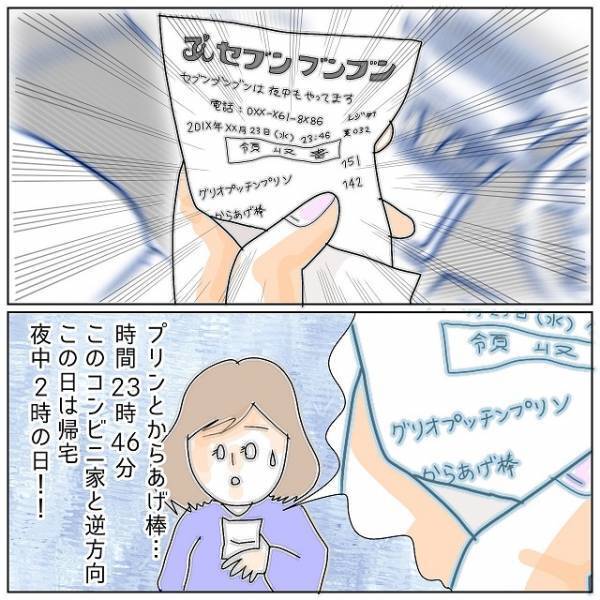 セブンブンブン
セブンブンブンは 夜中もやってます
電話：0XX-X61-8X86
レジ#7
201X年XX月23日(水) 23:46
責032
領収書
グリオプッチンプリン
151
からあげ棒
142
プリンとからあげ棒…
時間23時46分
このコンビニ家と逆方向
この日は帰宅
夜中2時の日！！
(水)
領収
グリオプッチンプリン
からあげ棒